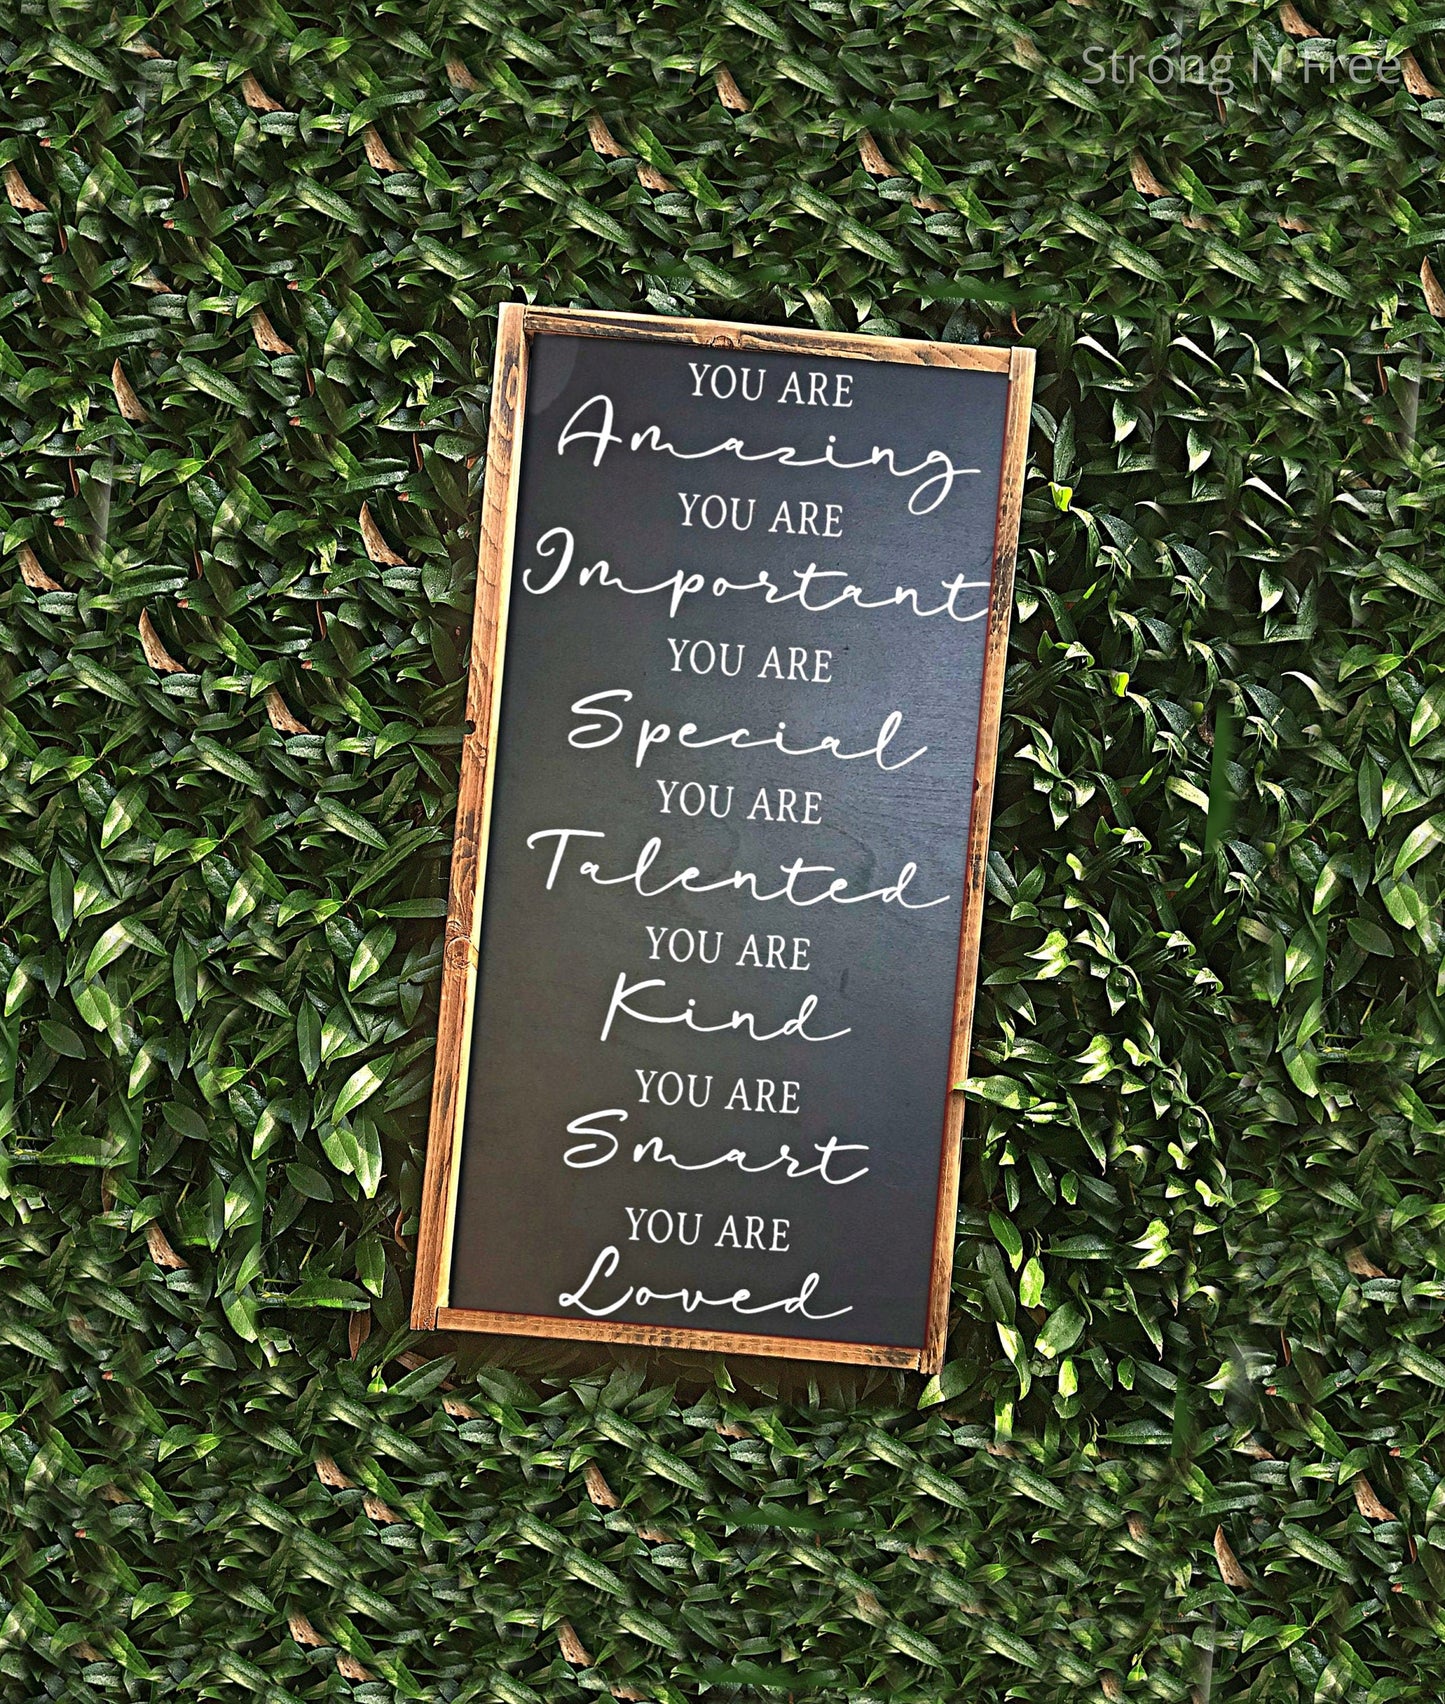 Strong N Free
YOU ARE
Amazing
YOU ARE
Important
YOU ARE
Special
YOU ARE
Talented
YOU ARE
Kind
YOU ARE
Smart
YOU ARE
Loved